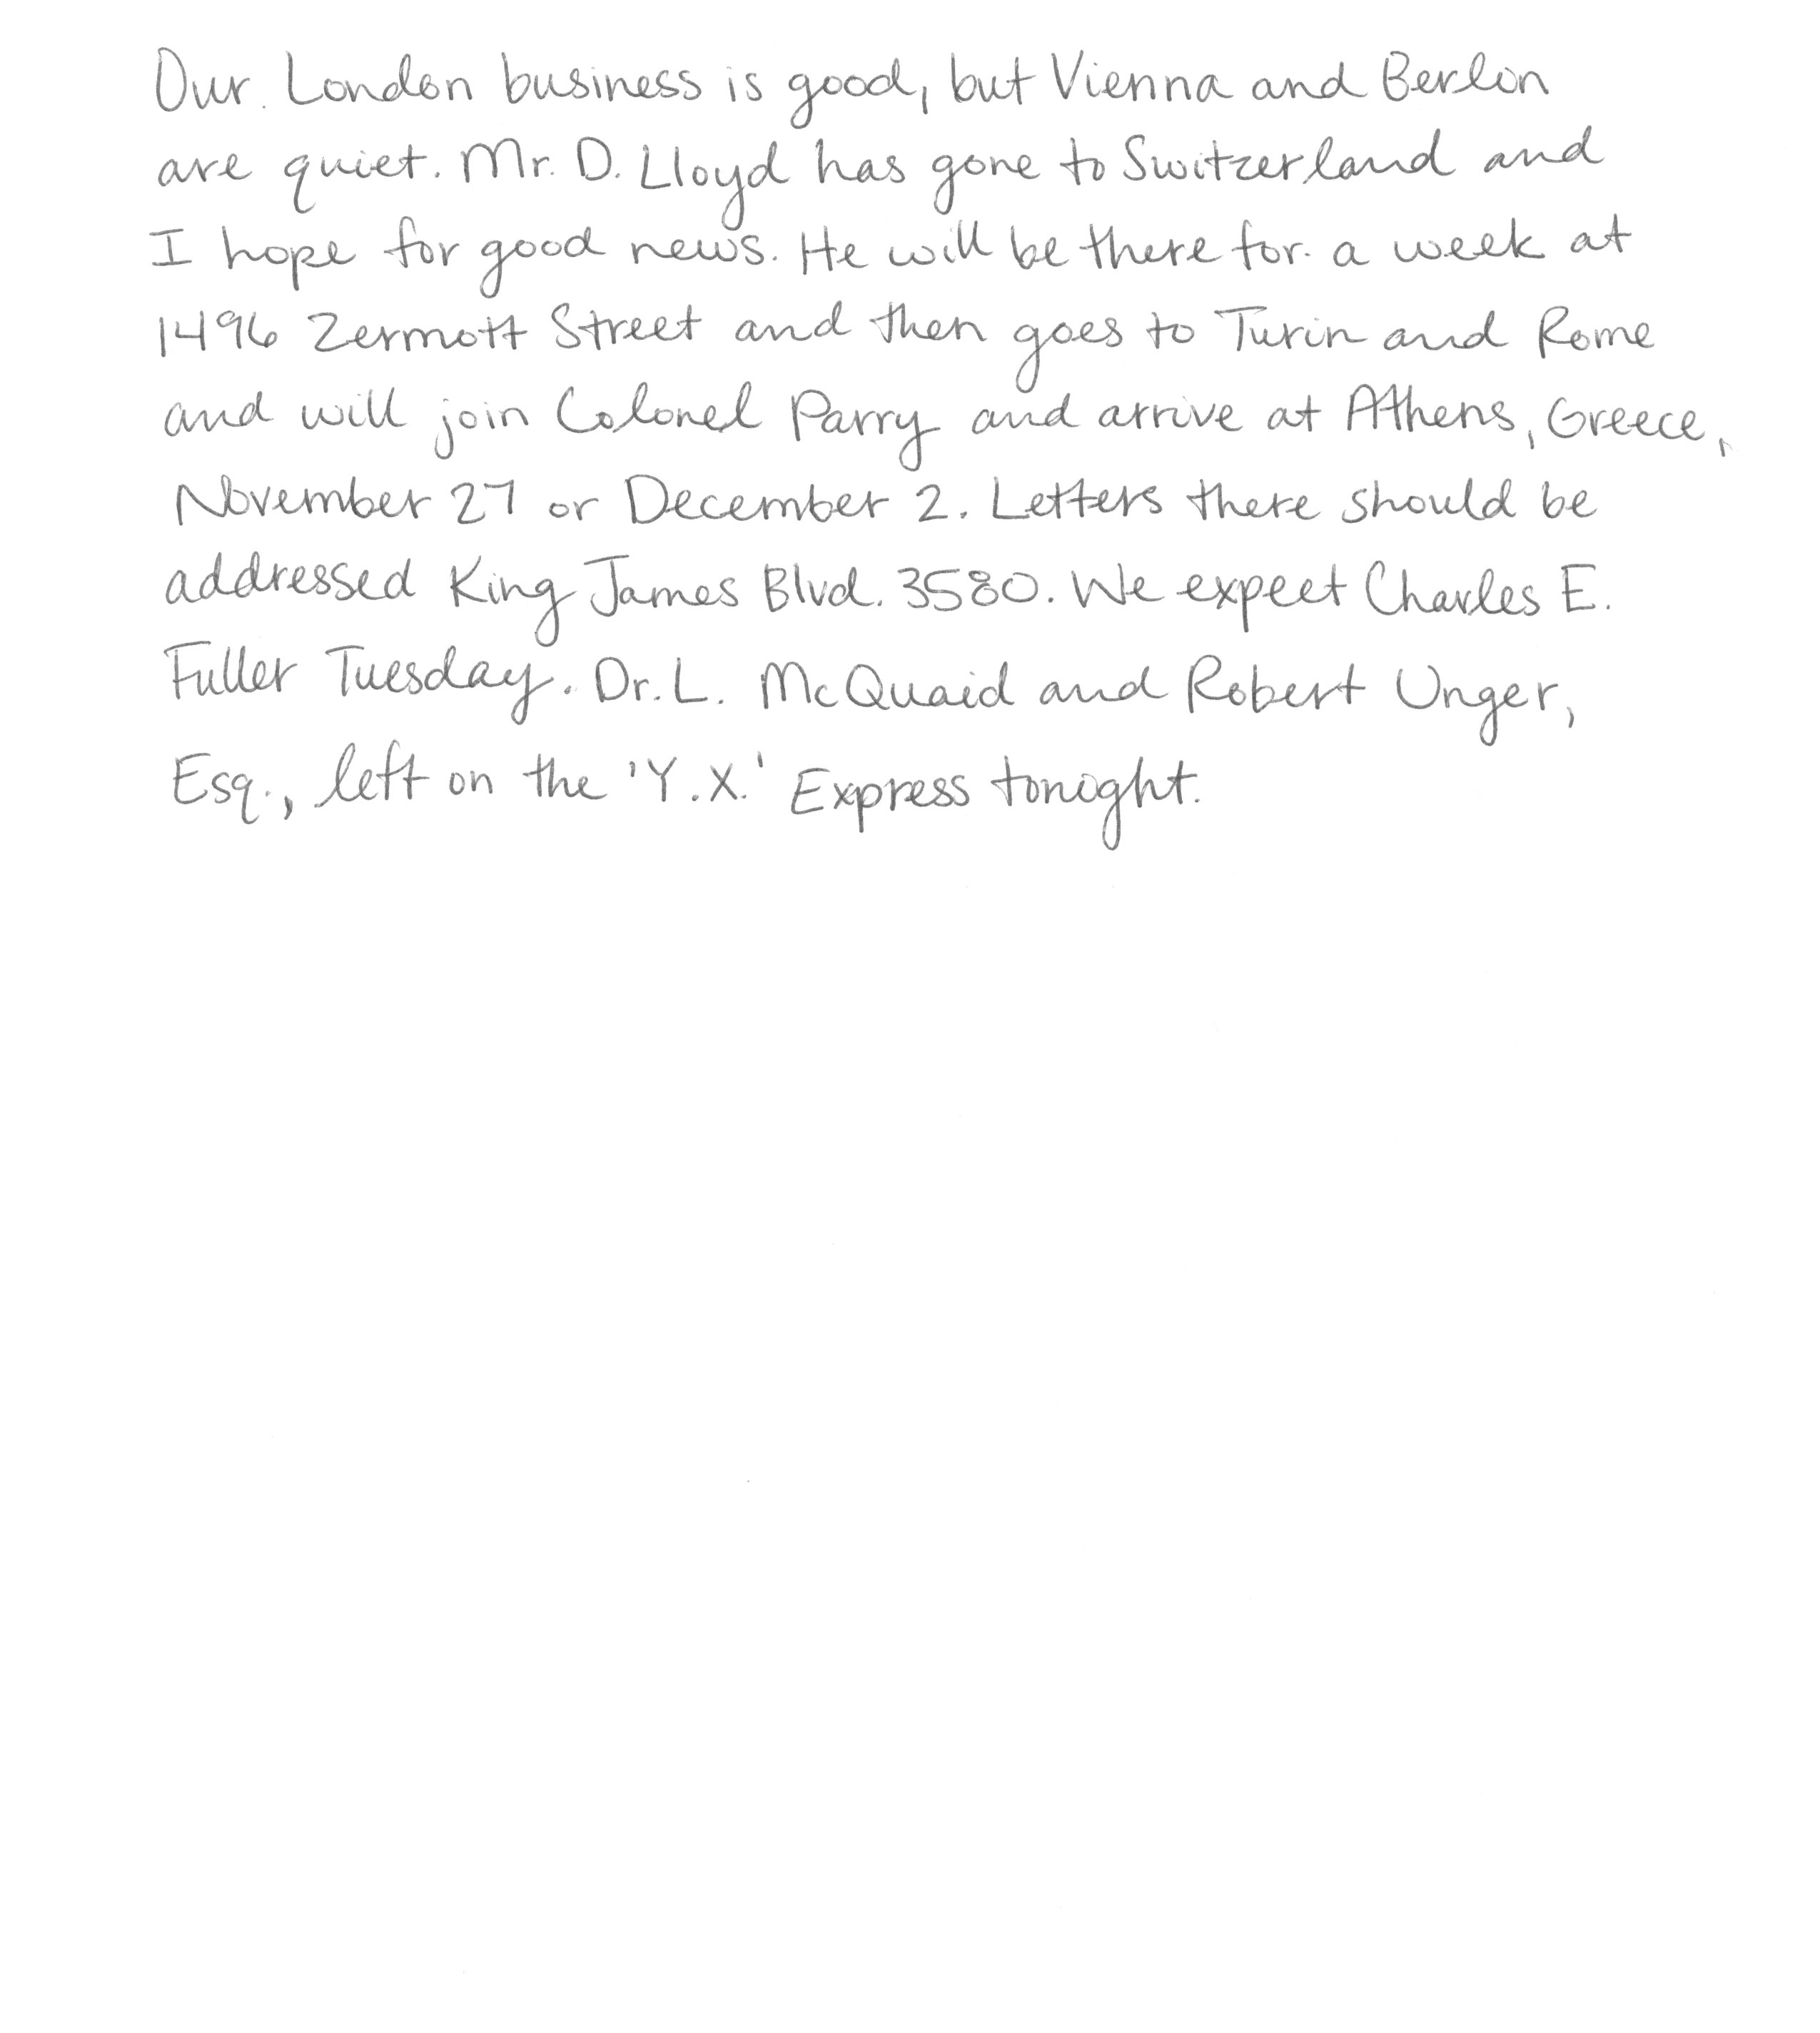 Our London business is good, but Vienna and Berlin
are quiet. Mr. D. Lloyd has gone to Switzerland and
I hope for good news. He will be there for a week at
1496 Zermott Street and then goes to Turin and Rome
and will join Colonel Parry and arrive at Athens, Greece,
November 27 or December 2. Letters there should be
addressed King James Blvd. 3580. We expect Charles E.
Fuller Tuesday. Dr. L. McQuaid and Robert Unger,
Esq., left on the 'Y.X.' Express tonight.